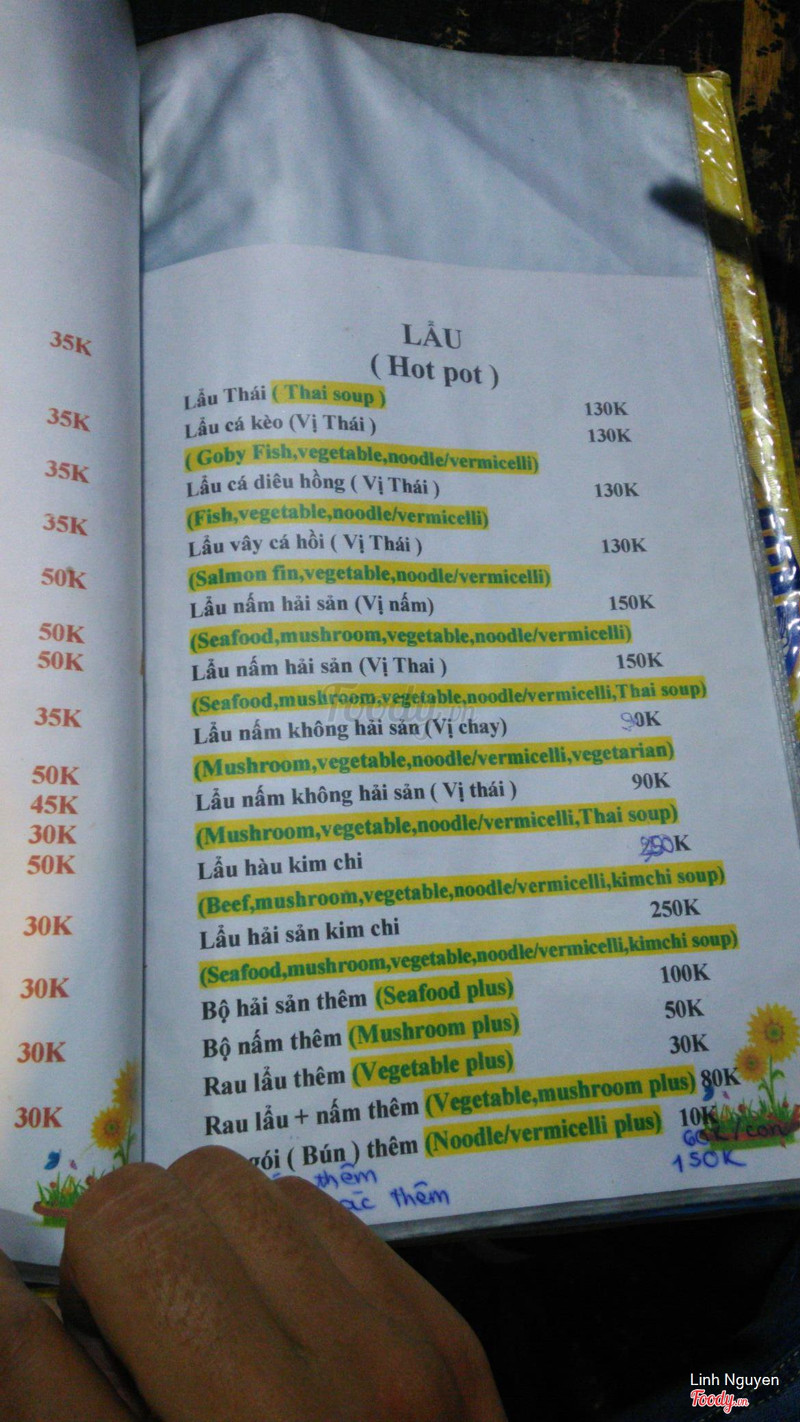 35K
35K
35K
35K
50K
50K
50K
35K
50K
45K
30K
50K
30K
30K
30K
30K
LẨU
( Hot pot )
Lẩu Thái ( Thai soup ) 130K
Lẩu cá kèo (Vị Thái ) 130K
( Goby Fish,vegetable,noodle/vermicelli)
Lẩu cá diêu hồng ( Vị Thái ) 130K
(Fish,vegetable,noodle/vermicelli)
Lẩu vây cá hồi ( Vị Thái ) 130K
(Salmon fin,vegetable,noodle/vermicelli)
Lẩu nấm hải sản (Vị nấm) 150K
(Seafood,mushroom,vegetable,noodle/vermicelli)
Lẩu nấm hải sản (Vị Thai ) 150K
(Seafood,mushroom,vegetable,noodle/vermicelli,Thai soup)
Lẩu nấm không hải sản (Vị chay) 90K
(Mushroom,vegetable,noodle/vermicelli,vegetarian)
Lẩu nấm không hải sản ( Vị thái ) 90K
(Mushroom,vegetable,noodle/vermicelli,Thai soup)
Lẩu hàu kim chi 250K
(Beef,mushroom,vegetable,noodle/vermicelli,kimchi soup)
Lẩu hải sản kim chi 250K
(Seafood,mushroom,vegetable,noodle/vermicelli,kimchi soup)
Bộ hải sản thêm (Seafood plus) 100K
Bộ nấm thêm (Mushroom plus) 50K
Rau lẩu thêm (Vegetable plus) 30K
Rau lẩu + nấm thêm (Vegetable,mushroom plus) 80K
gói ( Bún ) thêm (Noodle/vermicelli plus) 10K
thêm 60k/con
thêm 150K
Foody.vn
Linh Nguyen
Foody.vn